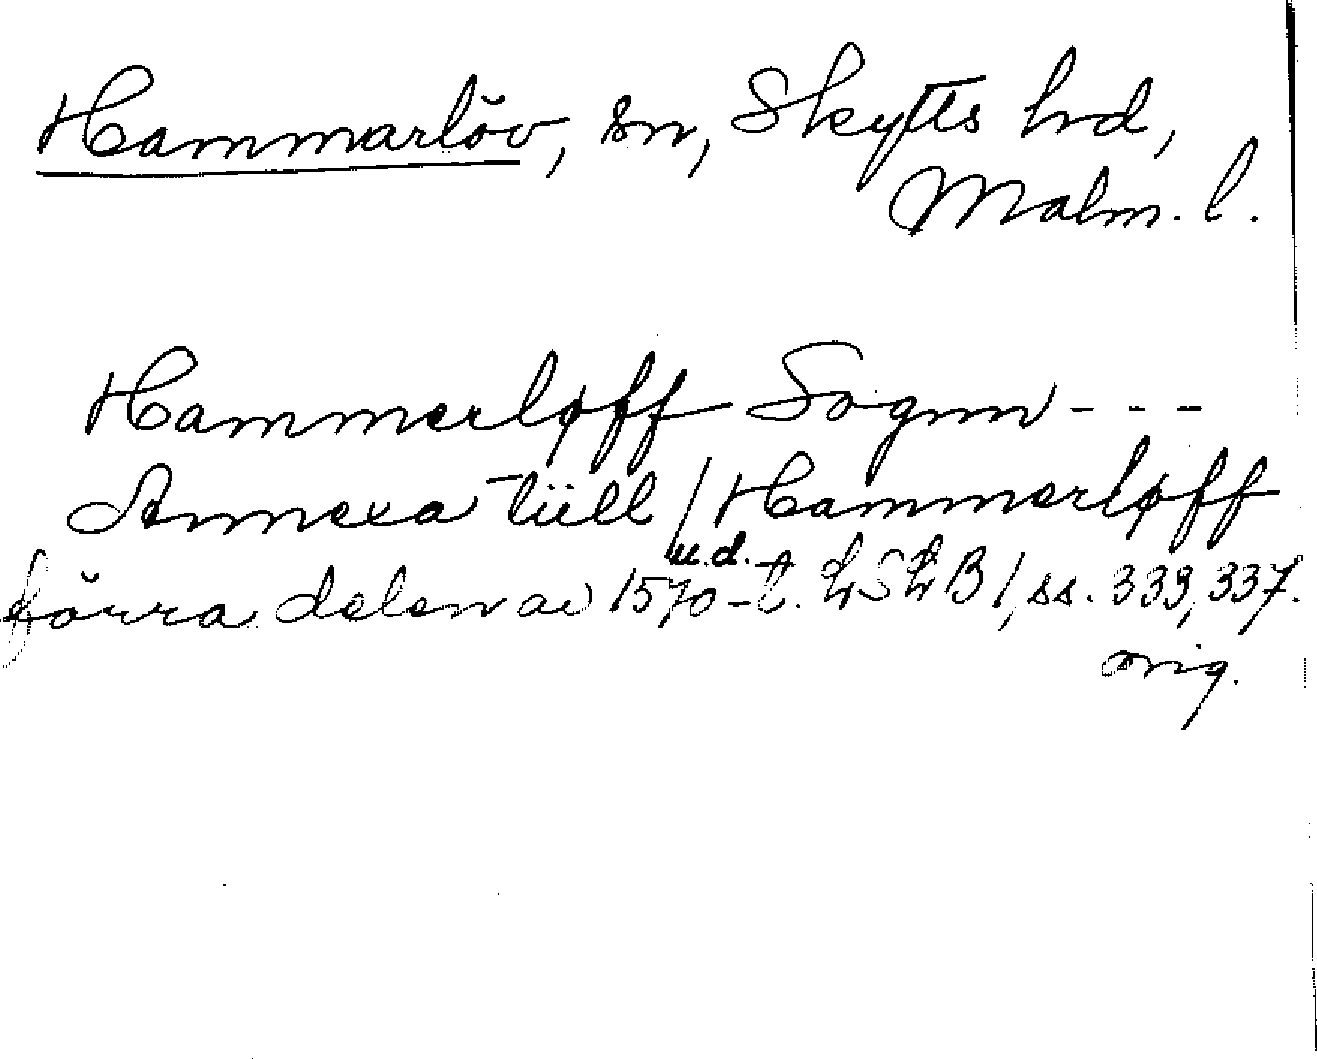 Hammarlöv, sn, Skytts hd,
Malm. l.
Hammerløff Sognn - - -
Annexa tüll / Hammerløff
u.d.
förra delen av 1570-t. LSLB 1, ss. 333, 337.
orig.